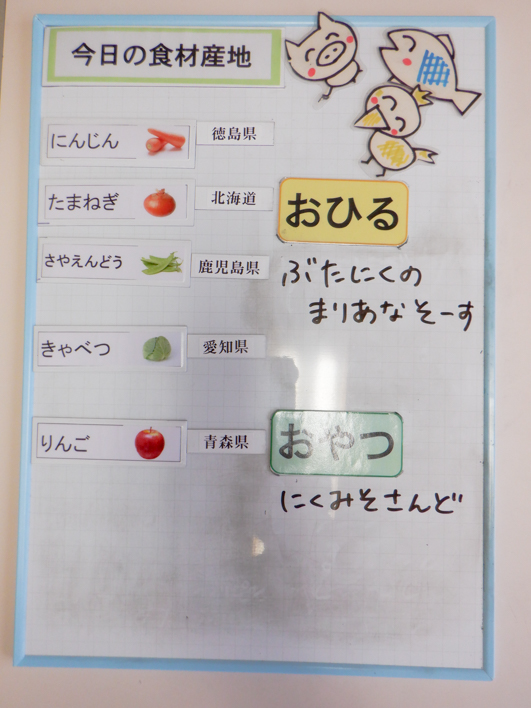 今日の食材産地
にんじん 徳島県
たまねぎ 北海道
さやえんどう 鹿児島県
きゃべつ 愛知県
りんご 青森県
おひる
ぶたにくの
まりあなそーす
おやつ
にくみそさんど